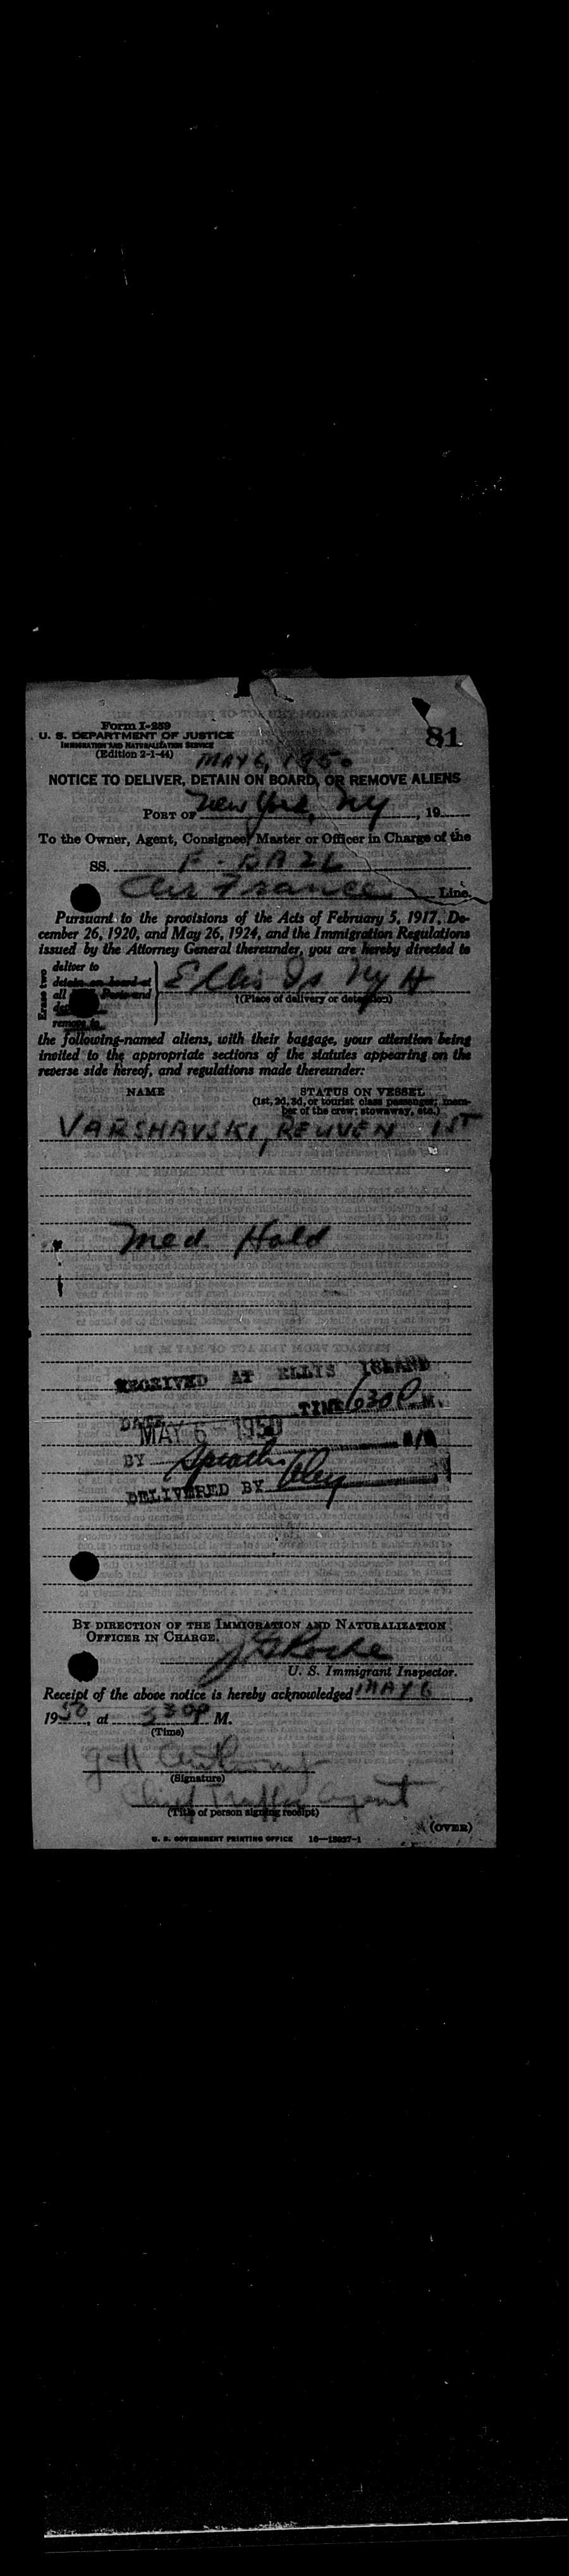 Form I-259
81
U. S. DEPARTMENT OF JUSTICE
IMMIGRATION AND NATURALIZATION SERVICE
(Edition 2-1-44)
MAY 6, 1950
NOTICE TO DELIVER, DETAIN ON BOARD, OR REMOVE ALIENS
PORT OF New York, NY, 19
To the Owner, Agent, Consignee, Master or Officer in Charge of the
SS. F-BAZL
Air France Line.
Pursuant to the provisions of the Acts of February 5, 1917, De-
cember 26, 1920, and May 26, 1924, and the Immigration Regulations
issued by the Attorney General thereunder, you are hereby directed to
Erase two
deliver to
detain on board at
all Ports and
remove to
Ellis Is NY H
†(Place of delivery or detention)
the following-named aliens, with their baggage, your attention being
invited to the appropriate sections of the statutes appearing on the
reverse side hereof, and regulations made thereunder:
NAME
STATUS ON VESSEL
(1st, 2d, 3d, or tourist class passenger; mem-
ber of the crew; stowaway, etc.)
VARSHAVSKI, REUVEN 1ST
Med. Hold
RECEIVED AT ELLIS ISLAND
DATE MAY 6 - 1950 TIME 630 P.M.
BY
DELIVERED BY
BY DIRECTION OF THE IMMIGRATION AND NATURALIZATION
OFFICER IN CHARGE.
U. S. Immigrant Inspector.
Receipt of the above notice is hereby acknowledged MAY 6,
1950, at 530P M.
(Time)
(Signature)
Chief Traffic Agent
(Title of person signing receipt)
(OVER)
U. S. GOVERNMENT PRINTING OFFICE 16—13937-1